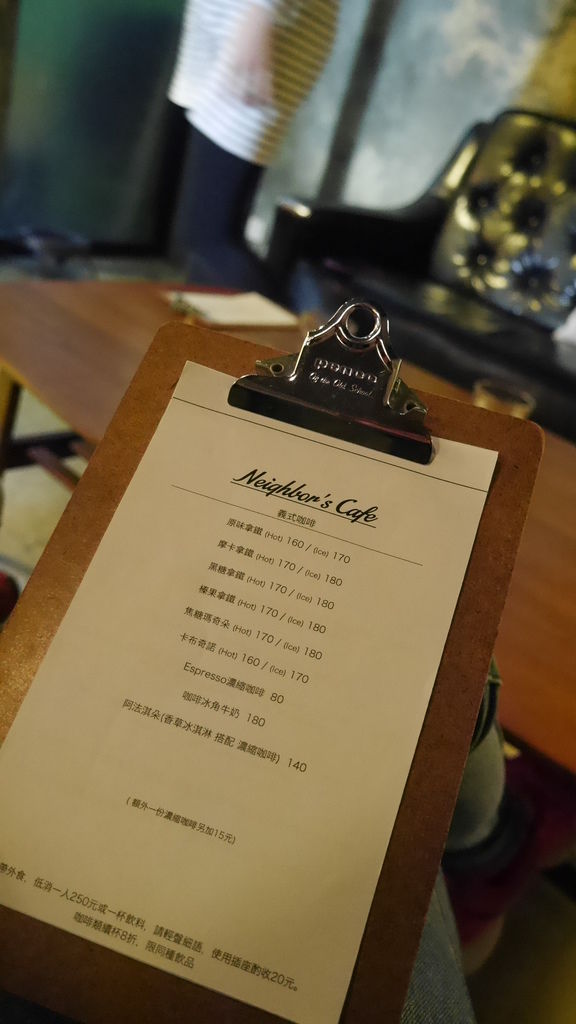 penco
Of the Old School
Neighbor's Cafe
義式咖啡
原味拿鐵 (Hot) 160 / (Ice) 170
摩卡拿鐵 (Hot) 170 / (Ice) 180
黑糖拿鐵 (Hot) 170 / (Ice) 180
榛果拿鐵 (Hot) 170 / (Ice) 180
焦糖瑪奇朵 (Hot) 170 / (Ice) 180
卡布奇諾 (Hot) 160 / (Ice) 170
Espresso濃縮咖啡 80
咖啡冰角牛奶 180
阿法淇朵(香草冰淇淋 搭配 濃縮咖啡) 140
( 額外一份濃縮咖啡另加15元)
帶外食, 低消一人250元或一杯飲料, 請輕聲細語, 使用插座酌收20元。
咖啡類續杯8折, 限同種飲品